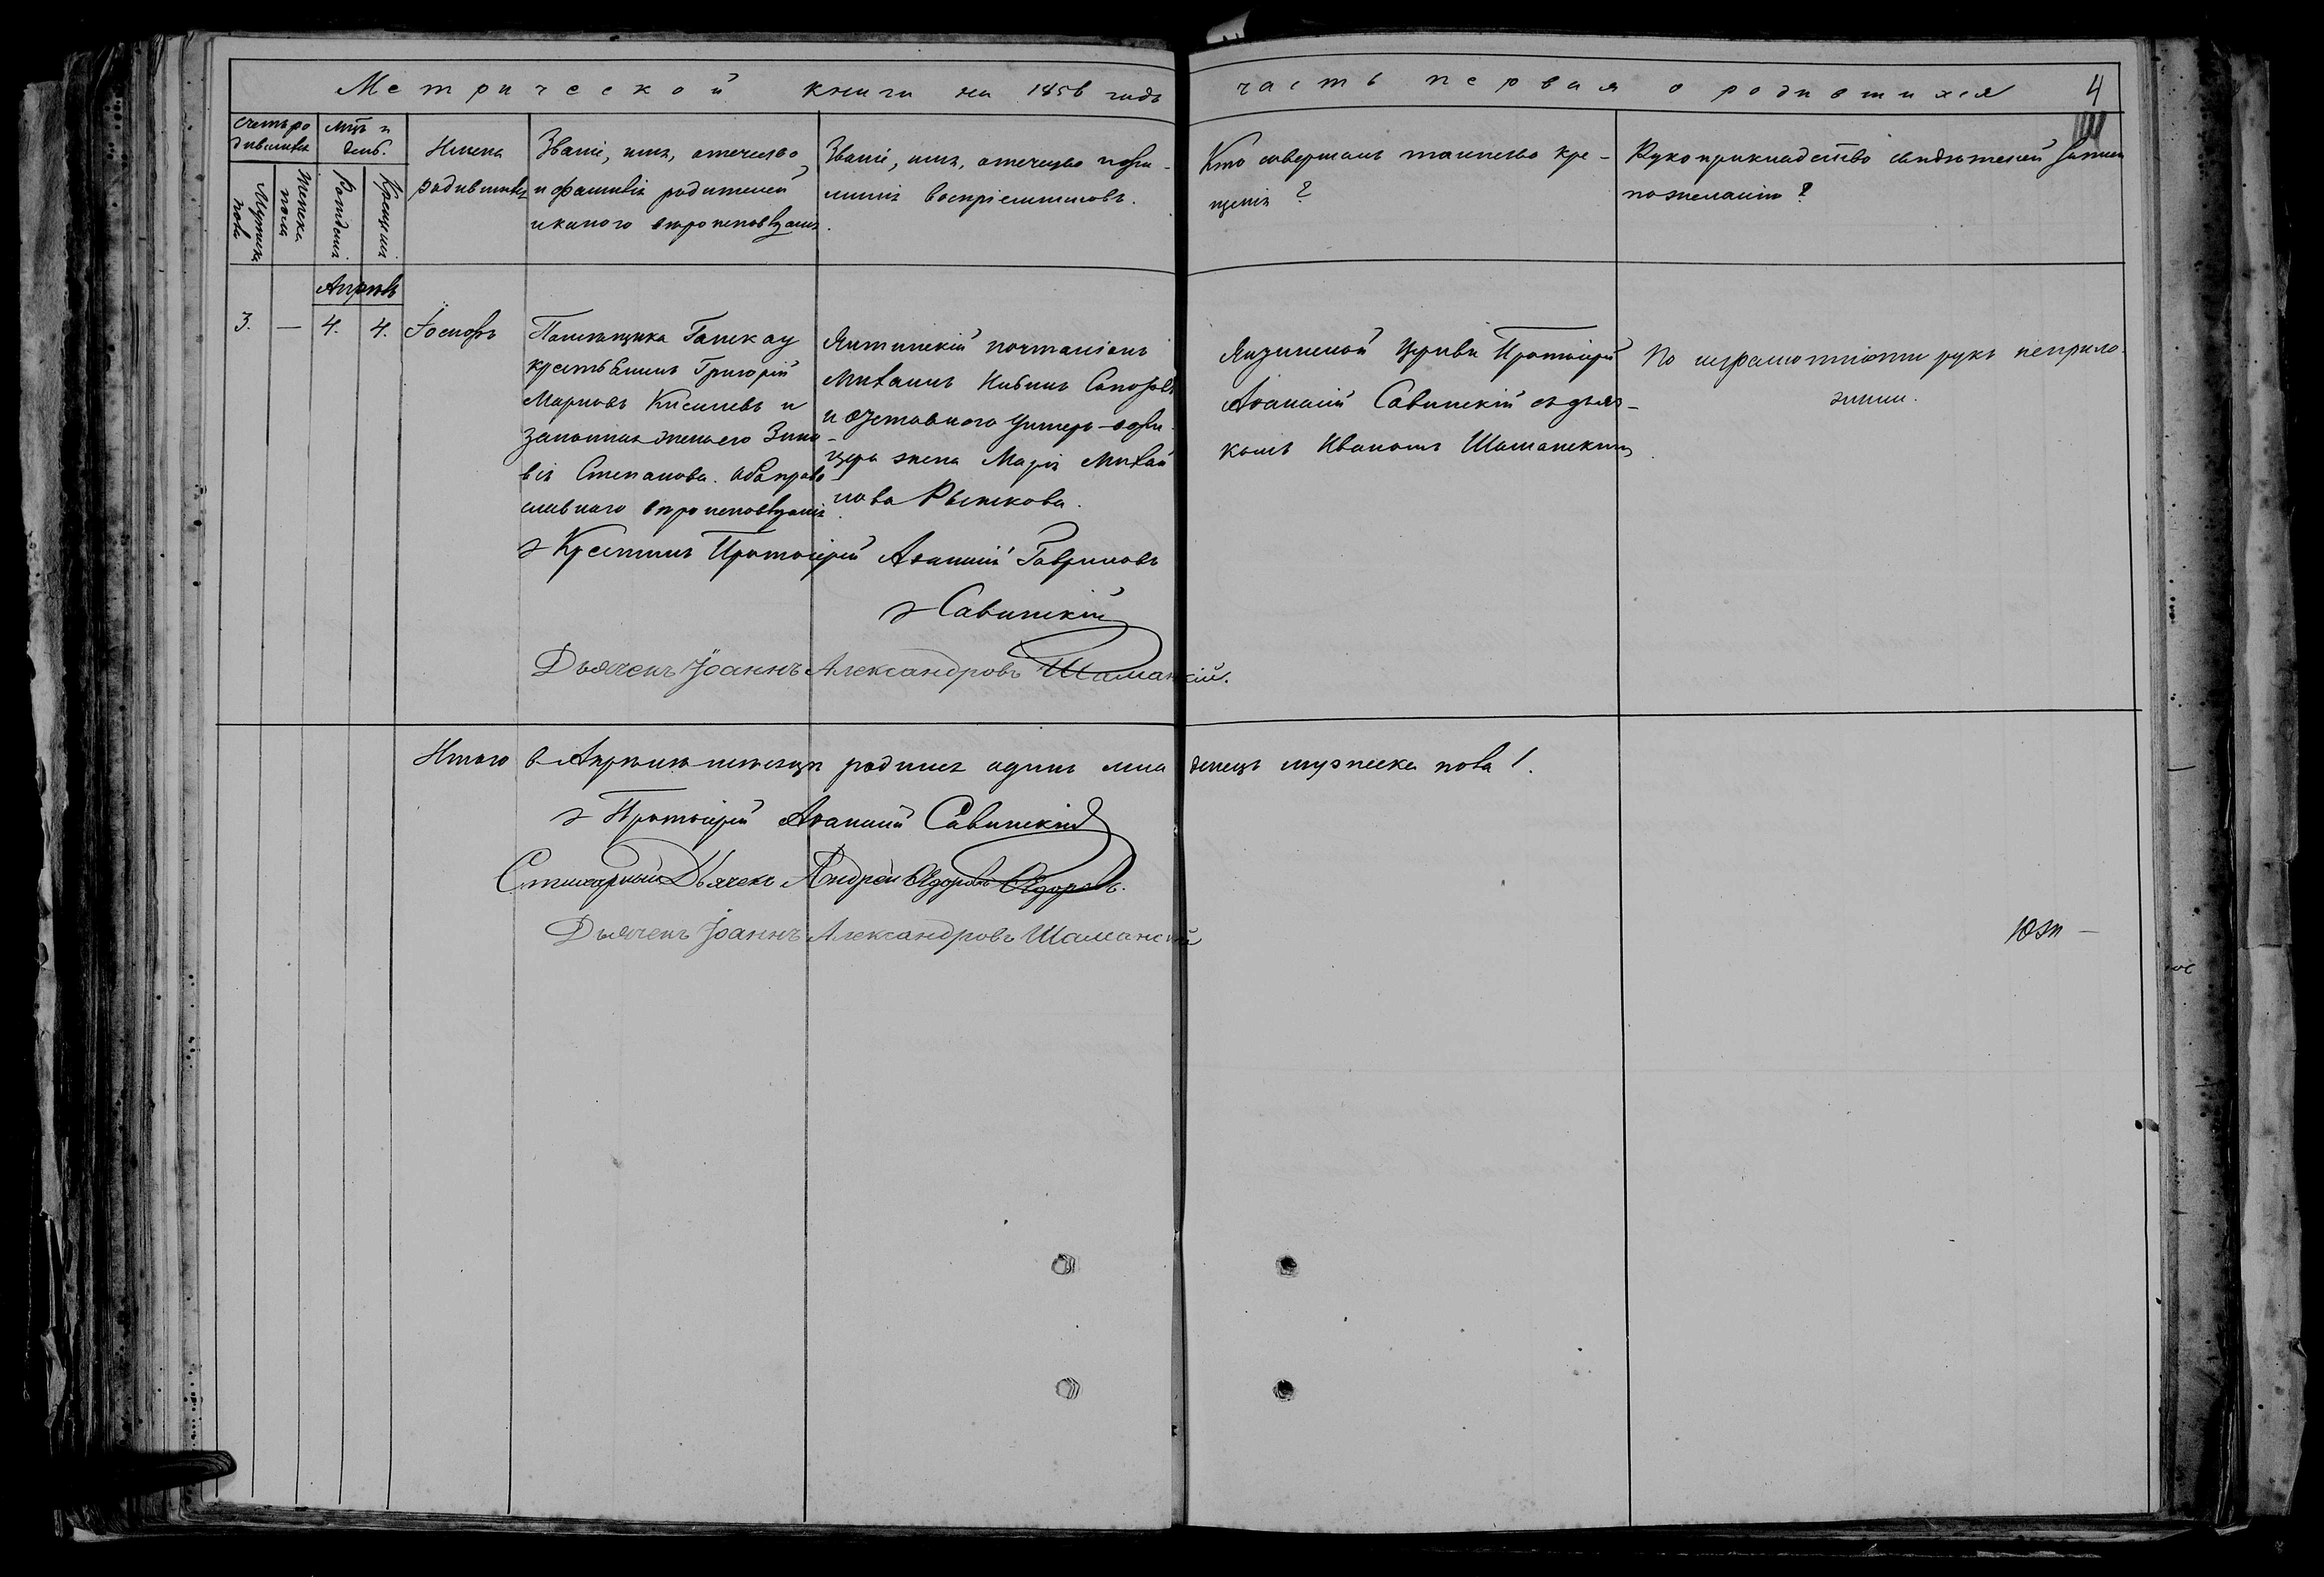 Метрической книги на 1856 годъ часть первая о родившихся 4
Счетъ родившихся
Мужеска пола
Женска пола
Мѣць и день.
Рожденія
Крещенія
Имена родившихся
Званіе, имя, отечество
и фамилія родителей
и какого вѣроисповѣданія.
Званіе, имя, отечество и фа-
милія воспріемниковъ.
Кто совершалъ таинство кре-
щенія?
Рукоприкладство свидѣтелей записи
по желанію?
Апрѣль
3. — 4. 4. Іосифъ
Помѣщика Ганскау
крестьянинъ Григорій
Марковъ Киселевъ и
законная жена его Зино-
вія Степанова. Оба право
славнаго вѣроисповѣданія
Михаилъ
и отставнаго унтеръ-офи-
цера жена Марія Михай
лова Рыжкова.
церкви Протоіерей
Аѳанасій Савинскій съ дьяч-
комъ Иваномъ Шаманскимъ
По неграмотности рукъ неприло-
жили.
Крестилъ Протоіерей Аѳанасій Гавриловъ
Савинскій
Дьячекъ Іоаннъ Александровъ Шаманскій.
Итого в Апрѣлѣ мѣсяцѣ родился одинъ мла денецъ мужеска пола 1.
Протоіерей Аѳанасій Савинскій
Стихарный Дьячекъ Андрей Ѳедоровъ Ѳедоровъ.
Дьячекъ Іоаннъ Александровъ Шаманскій